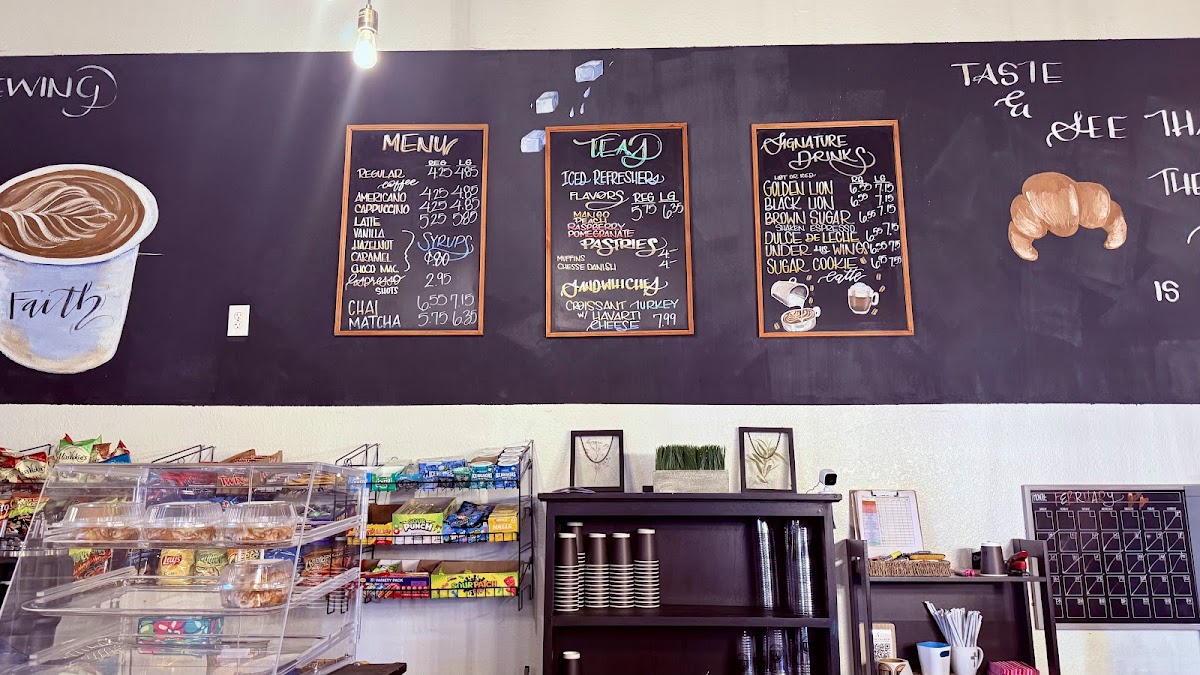 EWING
Faith
MENU
REG LG
REGULAR coffee 4.25 4.85
AMERICANO 4.25 4.85
CAPPUCCINO 4.25 4.85
LATTE 5.25 5.85
VANILLA
HAZELNUT
CARAMEL
CHOCO MAC
SYRUPS
.80
Espresso SHOTS 2.95
CHAI 6.55 7.15
MATCHA 5.75 6.35
TEAS
ICED REFRESHERS
FLAVORS REG LG
5.75 6.35
MANGO
PEACH
RASPBERRY
POMEGRANATE
PASTRIES
MUFFINS 4.-
CHESSE DANISH 4.-
SANDWHICHES
CROISSANT TURKEY
W/ HAVARTI
CHEESE 7.99
SIGNATURE
DRINKS
HOT OR ICED
RG LG
GOLDEN LION 6.55 7.15
BLACK LION 6.55 7.15
BROWN SUGAR 6.55 7.15
SHAKEN ESPRESSO
DULCE DE LECHE 6.55 7.15
UNDER HIS WINGS 6.55 7.15
SUGAR COOKIE latte 6.95 7.55
TASTE
&
SEE THA
THE
IS
FEBRUARY
Lay's
PUNCH
SOUR PATCH
VARIETY PACK